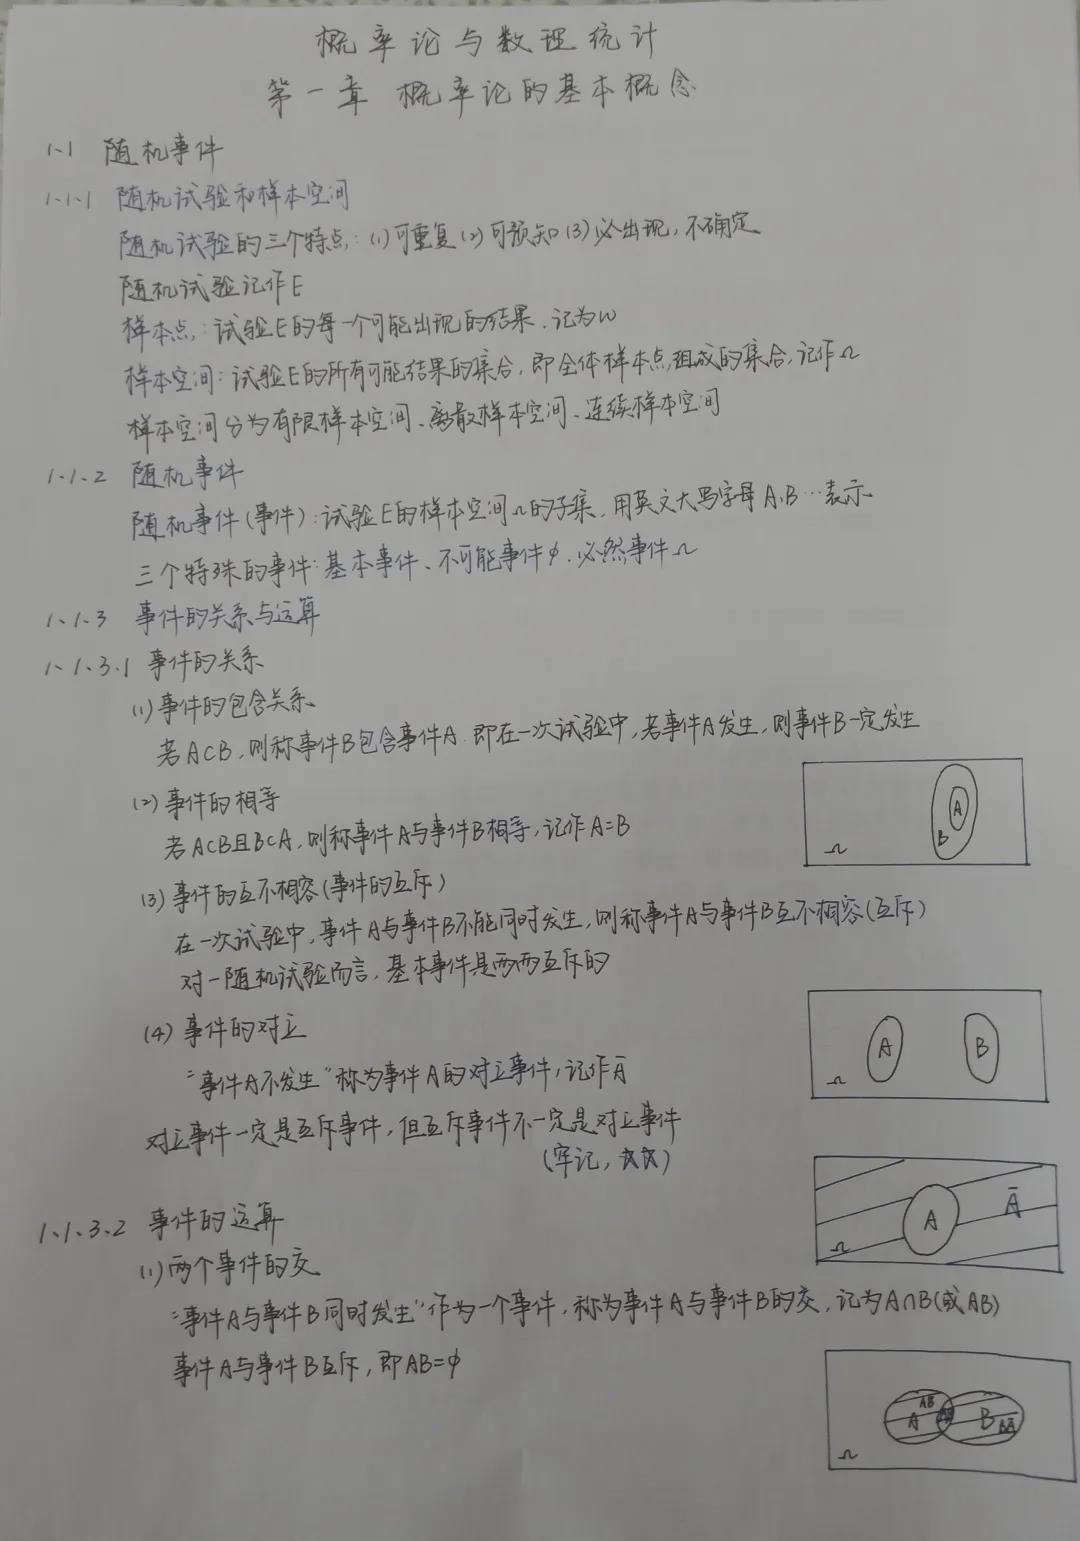 概率论与数理统计
第一章 概率论的基本概念
1.1 随机事件
1.1.1 随机试验和样本空间
随机试验的三个特点:(1)可重复(2)可预知(3)必出现,不确定
随机试验记作E
样本点:试验E的每一个可能出现的结果.记为w
样本空间:试验E的所有可能结果的集合,即全体样本点组成的集合,记作Ω
样本空间分为有限样本空间、离散样本空间、连续样本空间
1.1.2 随机事件
随机事件(事件):试验E的样本空间Ω的子集.用英文大写字母A.B…表示
三个特殊的事件:基本事件、不可能事件∅.必然事件Ω
1.1.3 事件的关系与运算
1.1.3.1 事件的关系
(1)事件的包含关系
若A⊂B,则称事件B包含事件A.即在一次试验中,若事件A发生,则事件B一定发生
A
B
Ω
(2)事件的相等
若A⊂B且B⊂A,则称事件A与事件B相等,记作A=B
(3)事件的互不相容(事件的互斥)
在一次试验中,事件A与事件B不能同时发生,则称事件A与事件B互不相容(互斥)
对一随机试验而言,基本事件是两两互斥的
A B
Ω
(4)事件的对立
"事件A不发生"称为事件A的对立事件,记作Ā
对立事件一定是互斥事件,但互斥事件不一定是对立事件
(牢记,☆☆)
A Ā
Ω
1.1.3.2 事件的运算
(1)两个事件的交
"事件A与事件B同时发生"作为一个事件,称为事件A与事件B的交,记为A∩B(或AB)
事件A与事件B互斥,即AB=∅
A B
BĀ
Ω